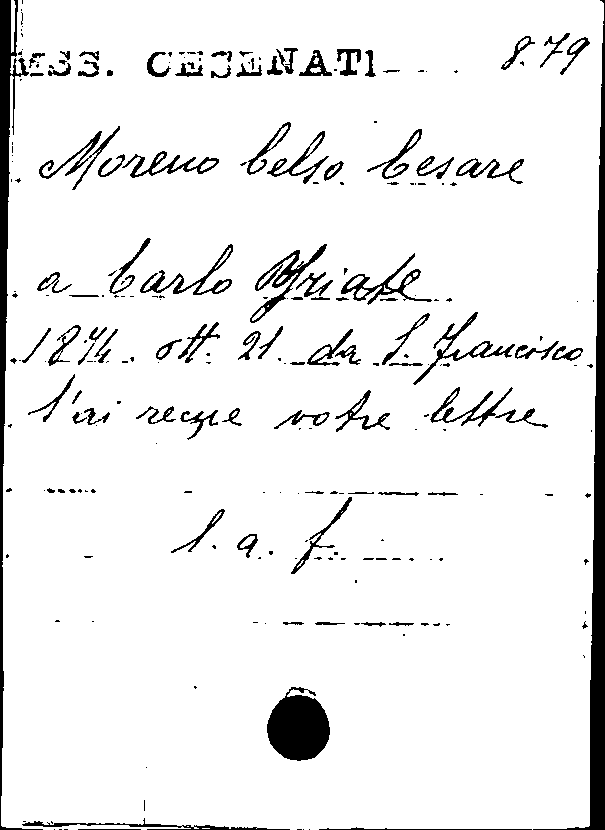 MSS. CESENATI 8.79
Moreno Celso Cesare
a Carlo Yriate
1874. ott. 21. da S. Francisco.
J'ai reçue votre lettre
l. a. f.